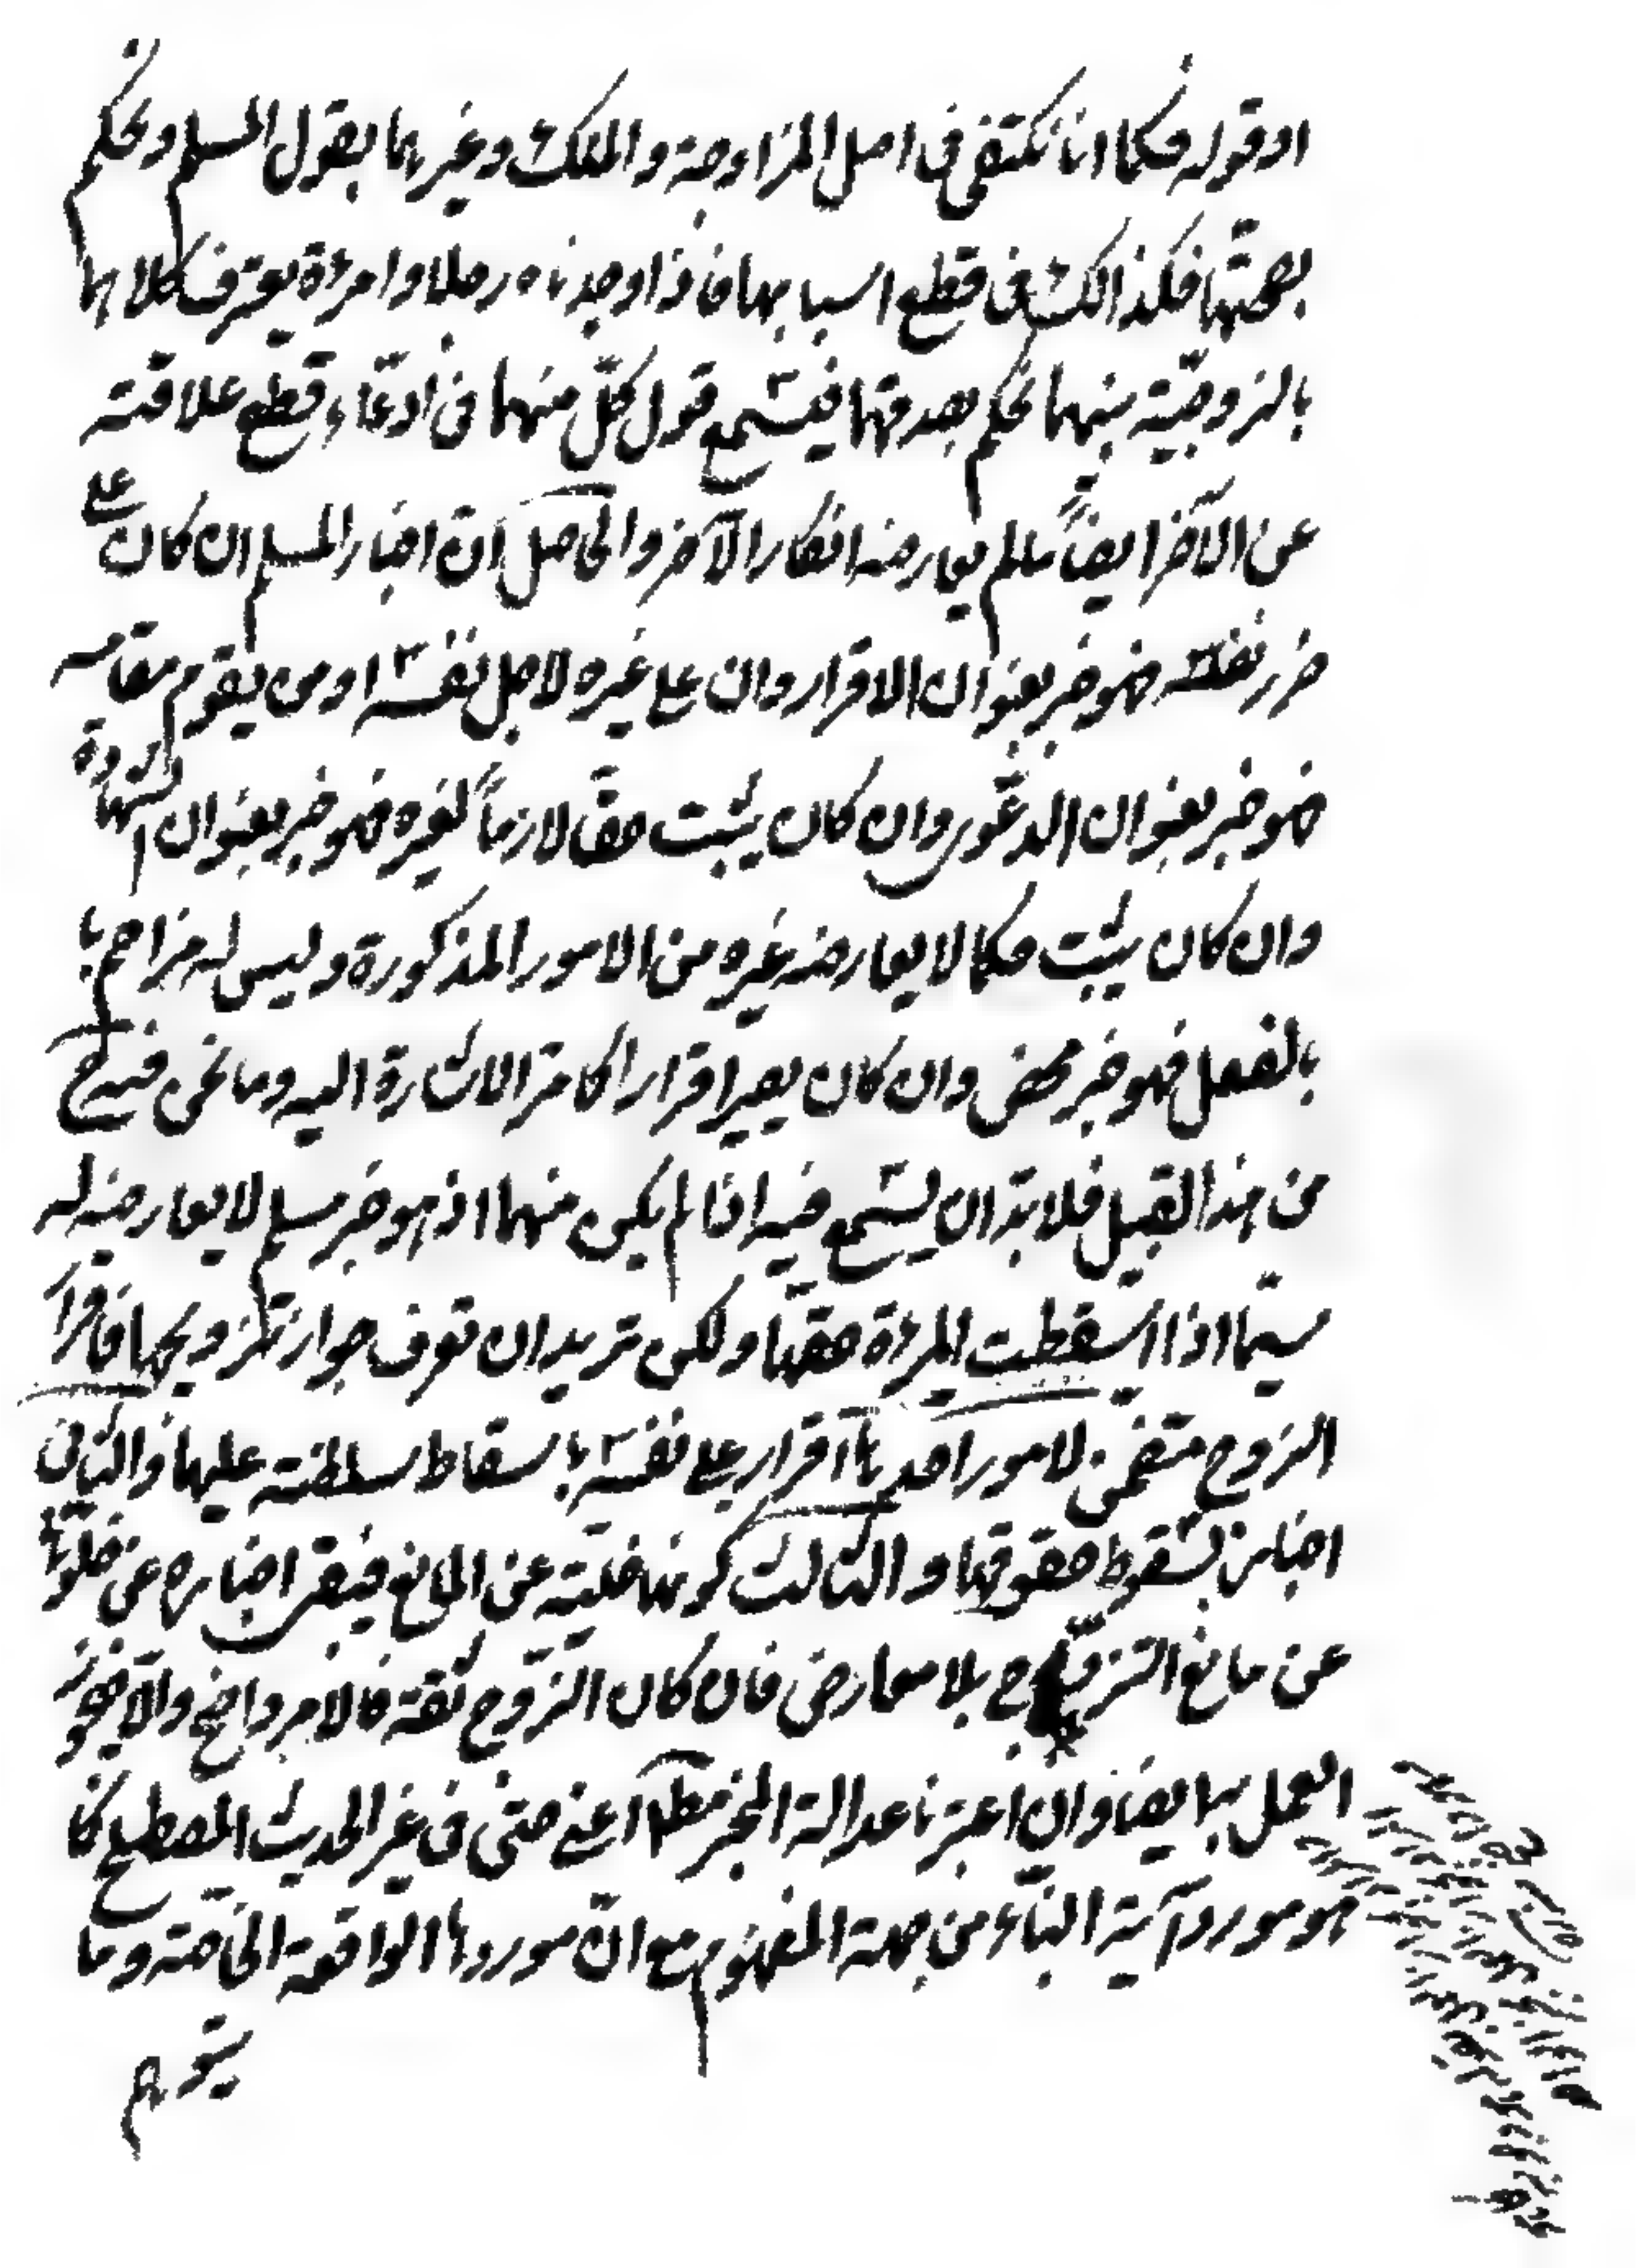 او قوله فكما انا نكتفى فى اصل المزاوجة والملك وغيرهما بقول المسلم ونحكم
بصحتها فكذالك فى قطع اسبابها فاذا وجدناه رجلا وامرئة يعترف كلاهما
بالزوجيّة بينهما نحكم بصدقهما فيسمع قول كلّ منهما فى ادّعاء قطع علاقته
عن الآخر ايضاً ما لم يعارضه انكار الآخر والحاصل انّ اخبار المسلم ان كان على
ضرر نفسه فهو خبر بعنوان الاقرار وان على غيره لاجل نفسه او من يقوم مقامه
فهو خبر بعنوان الدعوى وان كان يثبت حقا لازماً لغيره فهو خبر بعنوان الشهادة
وان كان يثبت حكما لا يعارضه غيره من الامور المذكورة وليس له مزاحم با
بالفعل فهو خبر محض وان كان يصير اقرارا كما مر الاشارة اليه وما نحن فيه ح
من هذا القبيل فلا بدّ ان يسمع فيه اذا لم يكن منهما اذ هو خبر مسلم لا يعارضه له
سيّما اذا اسقطت المرئة حقها ولكن تريد ان تعرف جواز تزويجها فاقرار
الزوج متضمن لامور احدها اقرار على نفسه باسقاط سلطنته عليها والثانى
اخباره بسقوط حقوقها والثالث كونها خلية عن المانع فيبقى اخباره عن خلوها
عن مانع التزويج بلا معارض فان كان الزّوج ثقة فالامر واضح والا فيجوز
العمل به ايضا وان اعتبرنا عدالة المخبر مطلقا اعنى حتى فى غير الحديث المصطلح كما
هو مورد آية النبأ من جهة المفهوم مع انّ موردها الواقعة الخاصّة وما
يتوهم